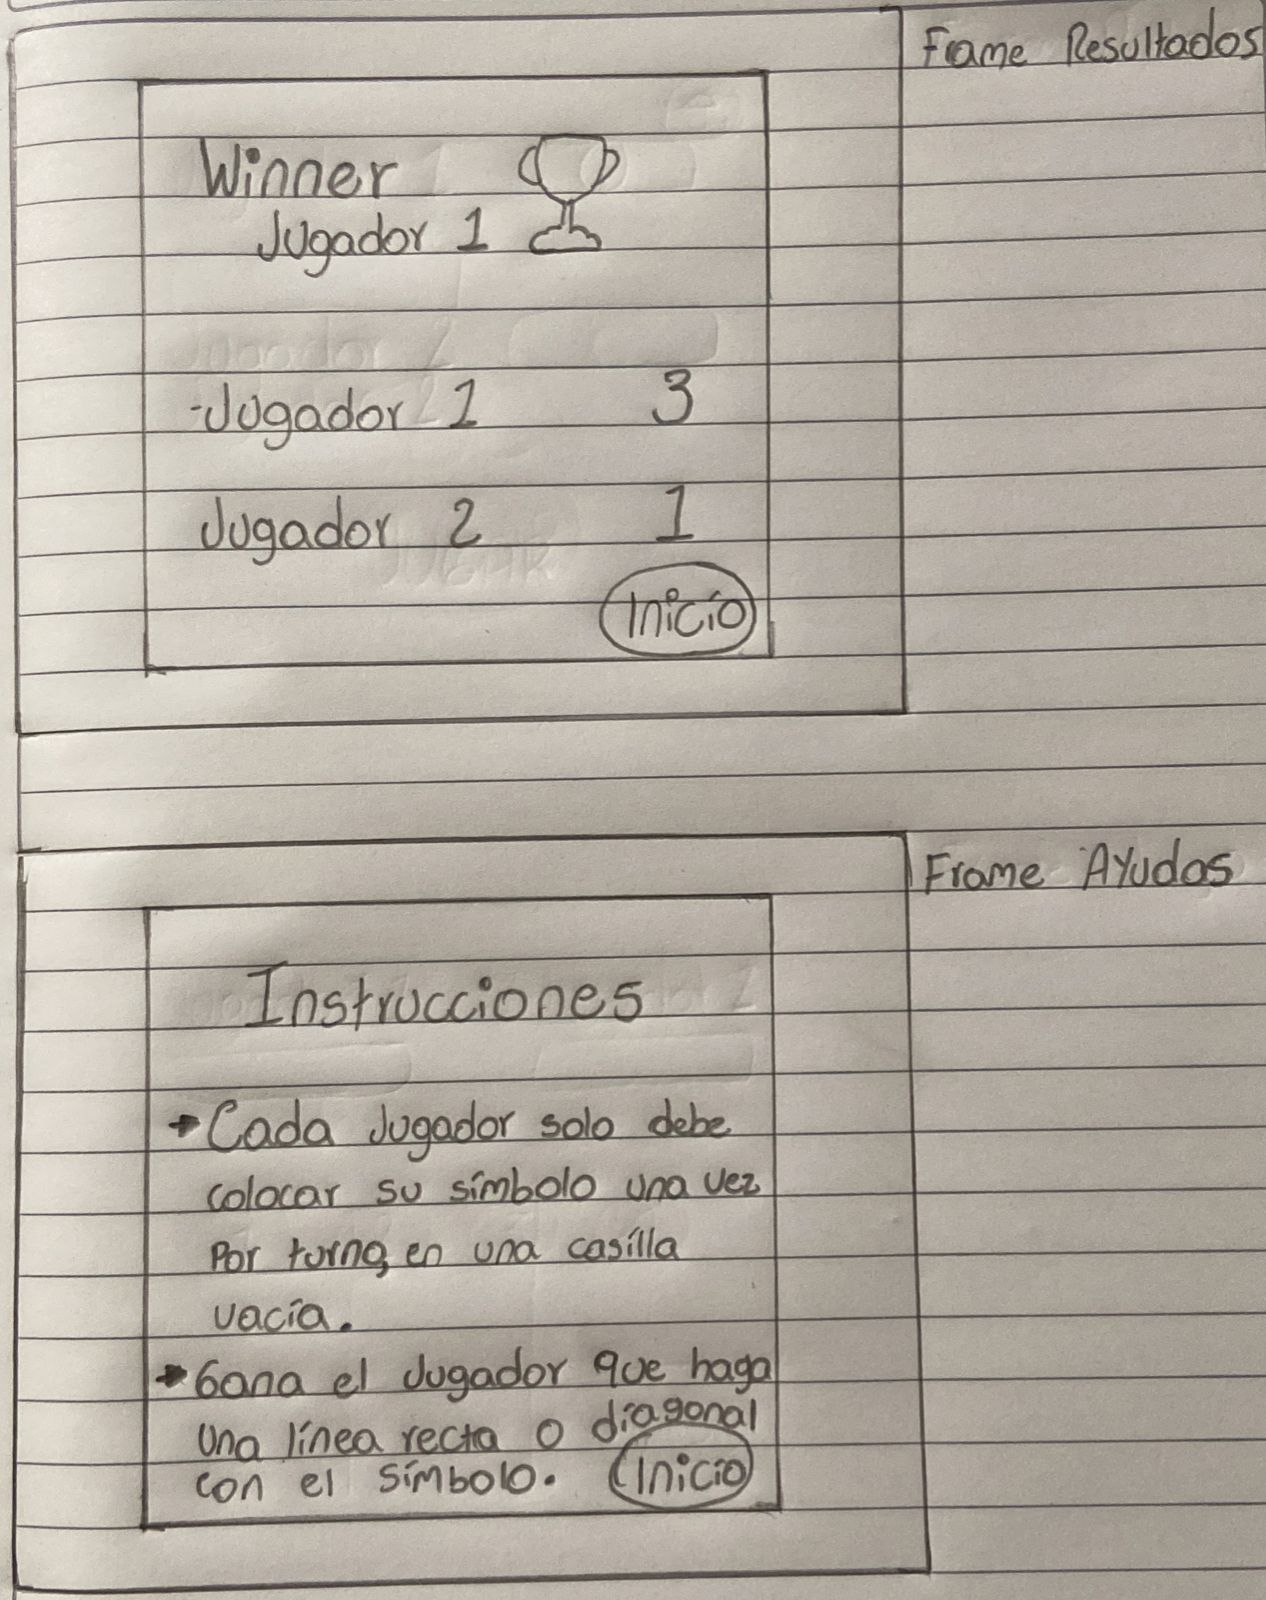 Frame Resultados
Winner
Jugador 1
Jugador 1 3
Jugador 2 1
Inicio
Frame Ayudas
Instrucciones
→ Cada Jugador solo debe
colocar su símbolo una vez
Por turno, en una casilla
vacía.
→ Gana el Jugador que haga
una línea recta o diagonal
con el símbolo. Inicio